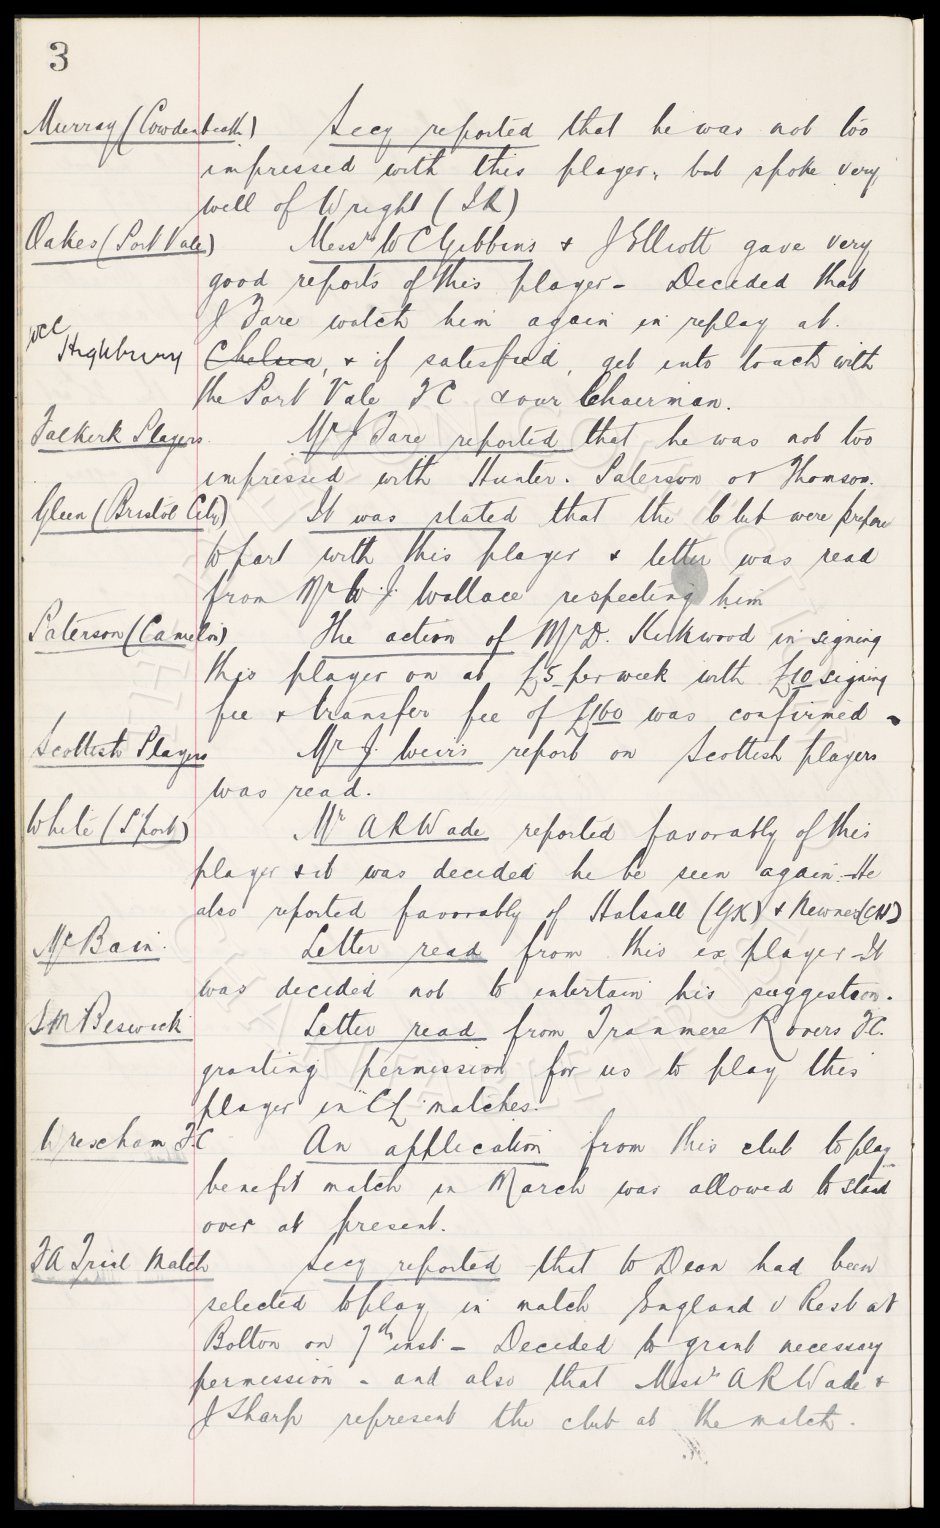 3
Murray (Cowdenbeath) Secy reported that he was not too
impressed with this player, but spoke very
well of Wright (IR)
Oakes (Port Vale) Messrs W C Gibbins & J Elliott gave very
good reports of this player - Decided that
J Fare watch him again in replay at
WCC
Highbury Chelsea, & if satisfied, get into touch with
the Port Vale FC & our Chairman.
Falkirk Players Mr J Fare reported that he was not too
impressed with Hunter. Paterson or Thomson.
Glen (Bristol City) It was stated that the Club were prepare
to part with this player & letter was read
from Mr W. J. Wallace respecting him
Paterson (Camelon) The action of Mr D. Kirkwood in signing
this player on at £5 per week with £10 signing
fee & transfer fee of £160 was confirmed -
Scottish Players Mr J. Weirs report on Scottish players
was read.
White (S'port) Mr A R Wade reported favorably of this
player & it was decided he be seen again. - He
also reported favorably of Halsall (GK) & Newnes (CH)
McBain. Letter read from this ex player - It
was decided not to entertain his suggestion.
Beswick Letter read from Tranmere Rovers FC.
granting permission for us to play this
player in "CL" matches.
Wrexham FC An application from this club to play
benefit match in March was allowed to stand
over at present.
FA Trial Match Secy reported that W Dean had been
selected to play in match England v Rest at
Bolton on 7th inst - Decided to grant necessary
permission - and also that Messrs A R Wade &
J Sharp represent the club at the match.